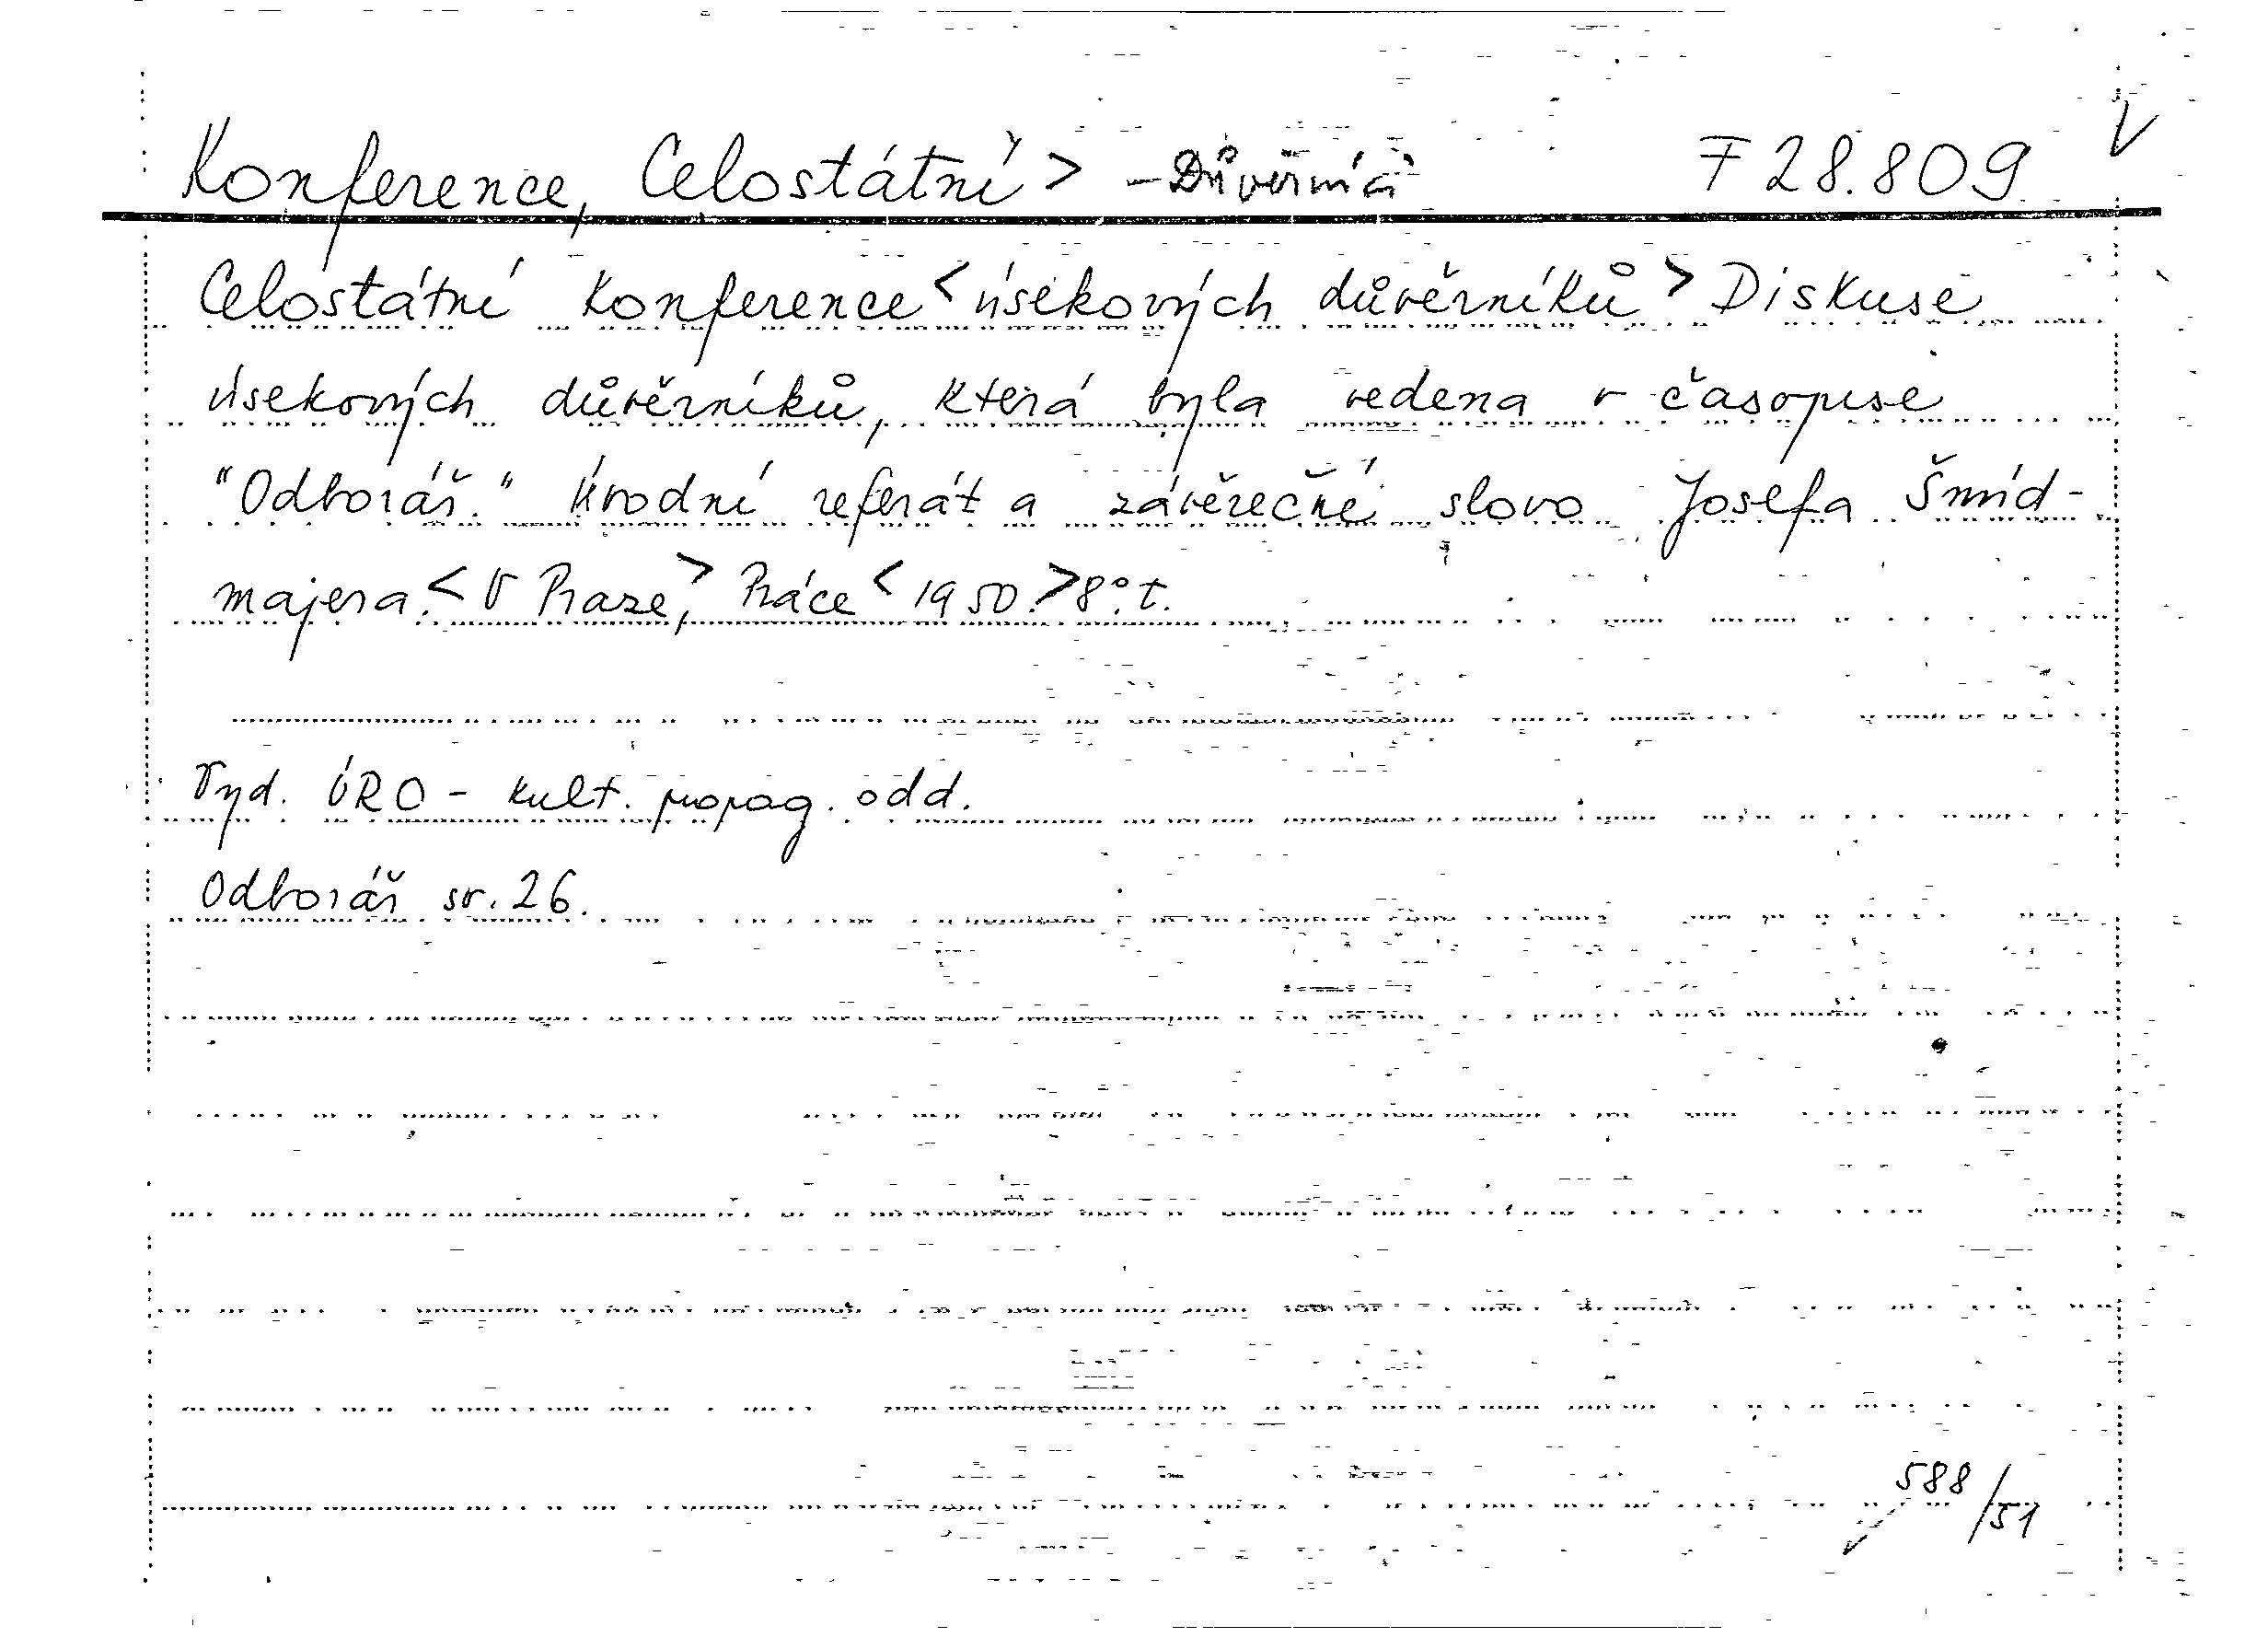 Konference, Celostátní > - Důvěrníci F 28.809 V
Celostátní konference < úsekových důvěrníků > Diskuse
úsekových důvěrníků, která byla vedena v časopise
"Odborář." Úvodní referát a závěrečné slovo Josefa Šmíd-
majera. < V Praze, > Práce < 1950. > 8°. t.
Vyd. ÚRO - kult. propag. odd.
Odborář sv. 26.
588/51